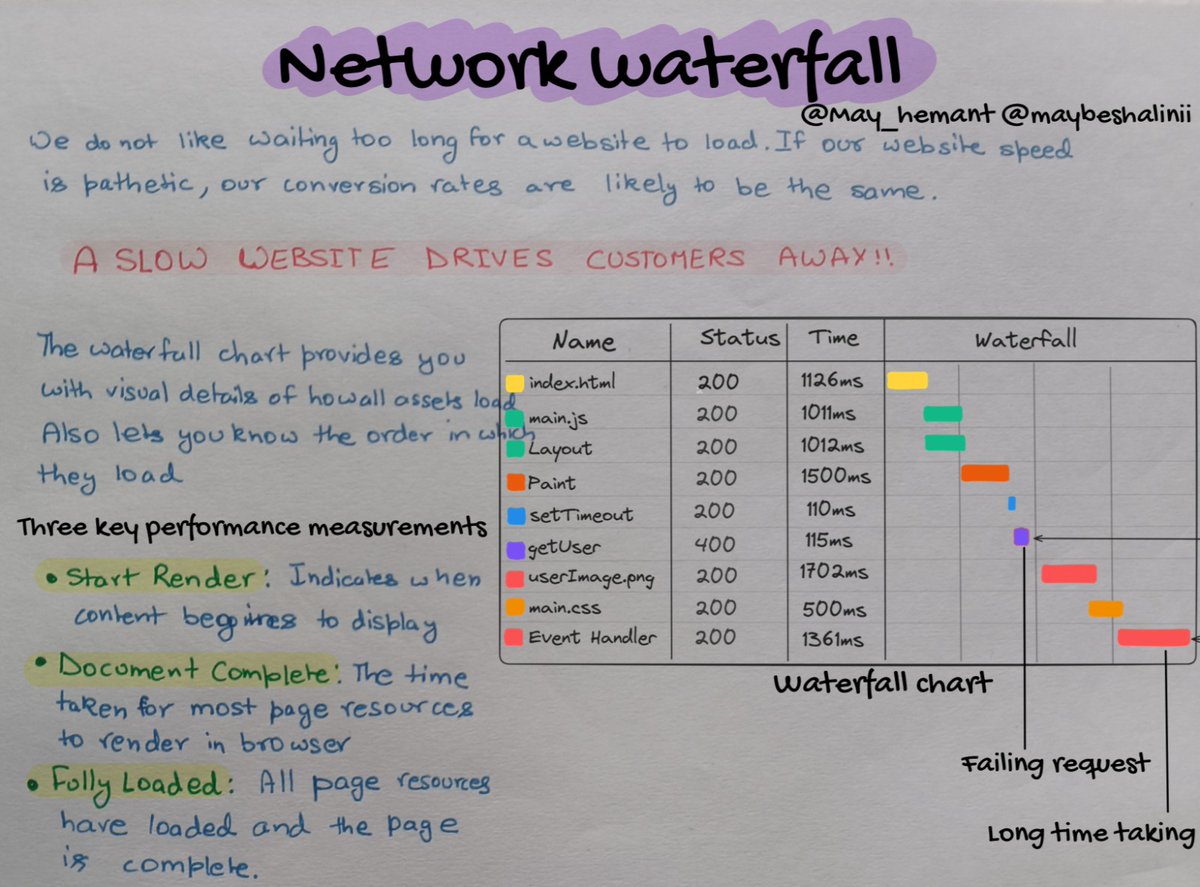 Network Waterfall
@May_hemant @maybeshalinii
We do not like waiting too long for a website to load. If our website speed
is pathetic, our conversion rates are likely to be the same.
A SLOW WEBSITE DRIVES CUSTOMERS AWAY!!
The waterfull chart provides you
with visual details of how all assets load
Also lets you know the order in which
they load
Three key performance measurements
• Start Render: Indicates when
content begins to display
• Document Complete: The time
taken for most page resources
to render in browser
• Fully Loaded: All page resources
have loaded and the page
is complete.
Name Status Time Waterfall
index.html 200 1126ms
main.js 200 1011ms
Layout 200 1012ms
Paint 200 1500ms
setTimeout 200 110ms
getUser 400 115ms
userImage.png 200 1702ms
main.css 200 500ms
Event Handler 200 1361ms
Waterfall chart
Failing request
Long time taking